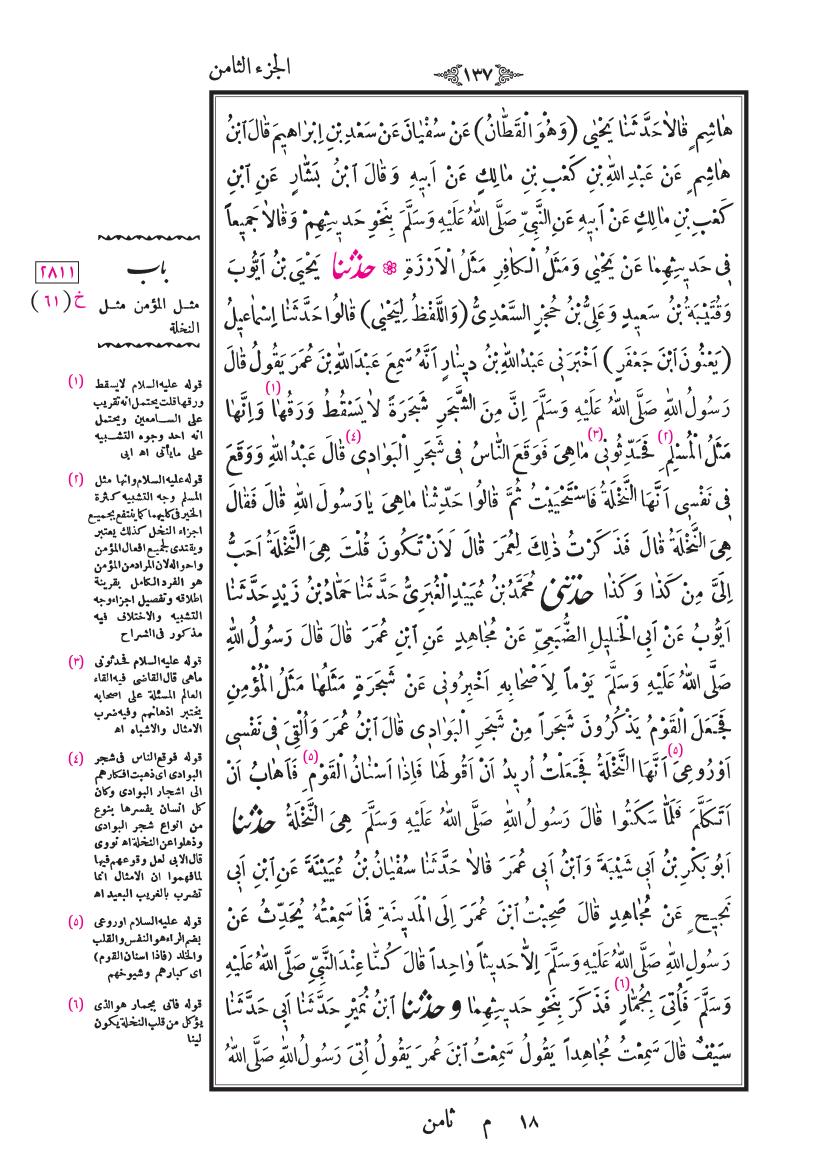 الجزء الثامن
١٣٧
هَاشِمٍ قَالَا حَدَّثَنَا يَحْيٰى (وَهُوَ الْقَطَّانُ) عَنْ سُفْيَانَ عَنْ سَعْدِ بْنِ اِبْرَاهِيمَ قَالَ ابْنُ
هَاشِمٍ عَنْ عَبْدِ اللهِ بْنِ كَعْبِ بْنِ مَالِكٍ عَنْ اَبِيهِ وَقَالَ ابْنُ بَشَّارٍ عَنِ ابْنِ
كَعْبِ بْنِ مَالِكٍ عَنْ اَبِيهِ عَنِ النَّبِيِّ صَلَّى اللهُ عَلَيْهِ وَسَلَّمَ بِنَحْوِ حَدِيثِهِمْ وَقَالَا جَمِيعاً
فِى حَدِيثِهِمَا عَنْ يَحْيٰى وَمَثَلُ الْكَافِرِ مَثَلُ الْاَرْزَةِ ❁ حَدَّثَنَا يَحْيَى بْنُ اَيُّوبَ
وَقُتَيْبَةُ بْنُ سَعِيدٍ وَعَلِىُّ بْنُ حُجْرٍ السَّعْدِىُّ (وَاللَّفْظُ لِيَحْيٰى) قَالُوا حَدَّثَنَا اِسْمَاعِيلُ
(يَعْنُونَ ابْنَ جَعْفَرٍ) اَخْبَرَنِى عَبْدُ اللهِ بْنُ دِينَارٍ اَنَّهُ سَمِعَ عَبْدَ اللهِ بْنَ عُمَرَ يَقُولُ قَالَ
رَسُولُ اللهِ صَلَّى اللهُ عَلَيْهِ وَسَلَّمَ اِنَّ مِنَ الشَّجَرِ شَجَرَةً لَا يَسْقُطُ وَرَقُهَا (١) وَاِنَّهَا
مَثَلُ الْمُسْلِمِ (٢) فَحَدِّثُونِى (٣) مَا هِىَ فَوَقَعَ النَّاسُ فِى شَجَرِ الْبَوَادِى (٤) قَالَ عَبْدُ اللهِ وَوَقَعَ
فِى نَفْسِى اَنَّهَا النَّخْلَةُ فَاسْتَحْيَيْتُ ثُمَّ قَالُوا حَدِّثْنَا مَا هِىَ يَا رَسُولَ اللهِ قَالَ فَقَالَ
هِىَ النَّخْلَةُ قَالَ فَذَكَرْتُ ذٰلِكَ لِعُمَرَ قَالَ لَاَنْ تَكُونَ قُلْتَ هِىَ النَّخْلَةُ اَحَبُّ
اِلَىَّ مِنْ كَذَا وَكَذَا حَدَّثَنِى مُحَمَّدُ بْنُ عُبَيْدٍ الْغُبَرِىُّ حَدَّثَنَا حَمَّادُ بْنُ زَيْدٍ حَدَّثَنَا
اَيُّوبُ عَنْ اَبِى الْخَلِيلِ الضُّبَعِىِّ عَنْ مُجَاهِدٍ عَنِ ابْنِ عُمَرَ قَالَ قَالَ رَسُولُ اللهِ
صَلَّى اللهُ عَلَيْهِ وَسَلَّمَ يَوْماً لِاَصْحَابِهِ اَخْبِرُونِى عَنْ شَجَرَةٍ مَثَلُهَا مَثَلُ الْمُؤْمِنِ
فَجَعَلَ الْقَوْمُ يَذْكُرُونَ شَجَراً مِنْ شَجَرِ الْبَوَادِى قَالَ ابْنُ عُمَرَ وَاُلْقِىَ فِى نَفْسِى
اَوْ رُوعِىَ (٥) اَنَّهَا النَّخْلَةُ فَجَعَلْتُ اُرِيدُ اَنْ اَقُولَهَا فَاِذَا اَسْنَانُ الْقَوْمِ (٥) فَاَهَابُ اَنْ
اَتَكَلَّمَ فَلَمَّا سَكَتُوا قَالَ رَسُولُ اللهِ صَلَّى اللهُ عَلَيْهِ وَسَلَّمَ هِىَ النَّخْلَةُ حَدَّثَنَا
اَبُو بَكْرِ بْنُ اَبِى شَيْبَةَ وَابْنُ اَبِى عُمَرَ قَالَا حَدَّثَنَا سُفْيَانُ بْنُ عُيَيْنَةَ عَنِ ابْنِ اَبِى
نَجِيحٍ عَنْ مُجَاهِدٍ قَالَ صَحِبْتُ ابْنَ عُمَرَ اِلَى الْمَدِينَةِ فَمَا سَمِعْتُهُ يُحَدِّثُ عَنْ
رَسُولِ اللهِ صَلَّى اللهُ عَلَيْهِ وَسَلَّمَ اِلَّا حَدِيثاً وَاحِداً قَالَ كُنَّا عِنْدَ النَّبِىِّ صَلَّى اللهُ عَلَيْهِ
وَسَلَّمَ فَاُتِىَ بِجُمَّارٍ (٦) فَذَكَرَ بِنَحْوِ حَدِيثِهِمَا وحَدَّثَنَا ابْنُ نُمَيْرٍ حَدَّثَنَا اَبِى حَدَّثَنَا
سَيْفٌ قَالَ سَمِعْتُ مُجَاهِداً يَقُولُ سَمِعْتُ ابْنَ عُمَرَ يَقُولُ اُتِىَ رَسُولُ اللهِ صَلَّى اللهُ
باب
٢٨١١
مثل المؤمن مثل
خ (٦١)
النخلة
(١) قوله عليه السلام لا يسقط
ورقها قلت يحتمل انه تقريب
على السامعين ويحتمل
انه احد وجوه التشبيه
على ما يأتى اه ابى
(٢) قوله عليه السلام وانها مثل
المسلم وجه التشبيه كثرة
الخير فى كليهما كما ينتفع بجميع
اجزاء النخل كذلك يعتبر
ويقتدى لجميع افعال المؤمن
واحواله لان المراد من المؤمن
هو الفرد الكامل بقرينة
اطلاقه وتفصيل اجزاء وجه
التشبيه والاختلاف فيه
مذكور فى الشراح
(٣) قوله عليه السلام فحدثونى
ماهى قال القاضى فيه القاء
العالم المسئلة على اصحابه
يختبر اذهانهم وفيه ضرب
الامثال والاشباه اه
(٤) قوله فوقع الناس فى شجر
البوادى اى ذهبت افكارهم
الى اشجار البوادى وكان
كل انسان يفسرها بنوع
من انواع شجر البوادى
وذهلوا عن النخلة اه نووى
قال الابى لعل وقوعهم فيها
لما فهموا ان الامثال انما
تضرب بالغريب البعيد اه
(٥) قوله عليه السلام او روعى
بضم الراء هو النفس والقلب
والخلد (فاذا اسنان القوم)
اى كبارهم وشيوخهم
(٦) قوله فاتى بجمار هو الذى
يؤكل من قلب النخلة يكون
لينا
١٨ م ثامن